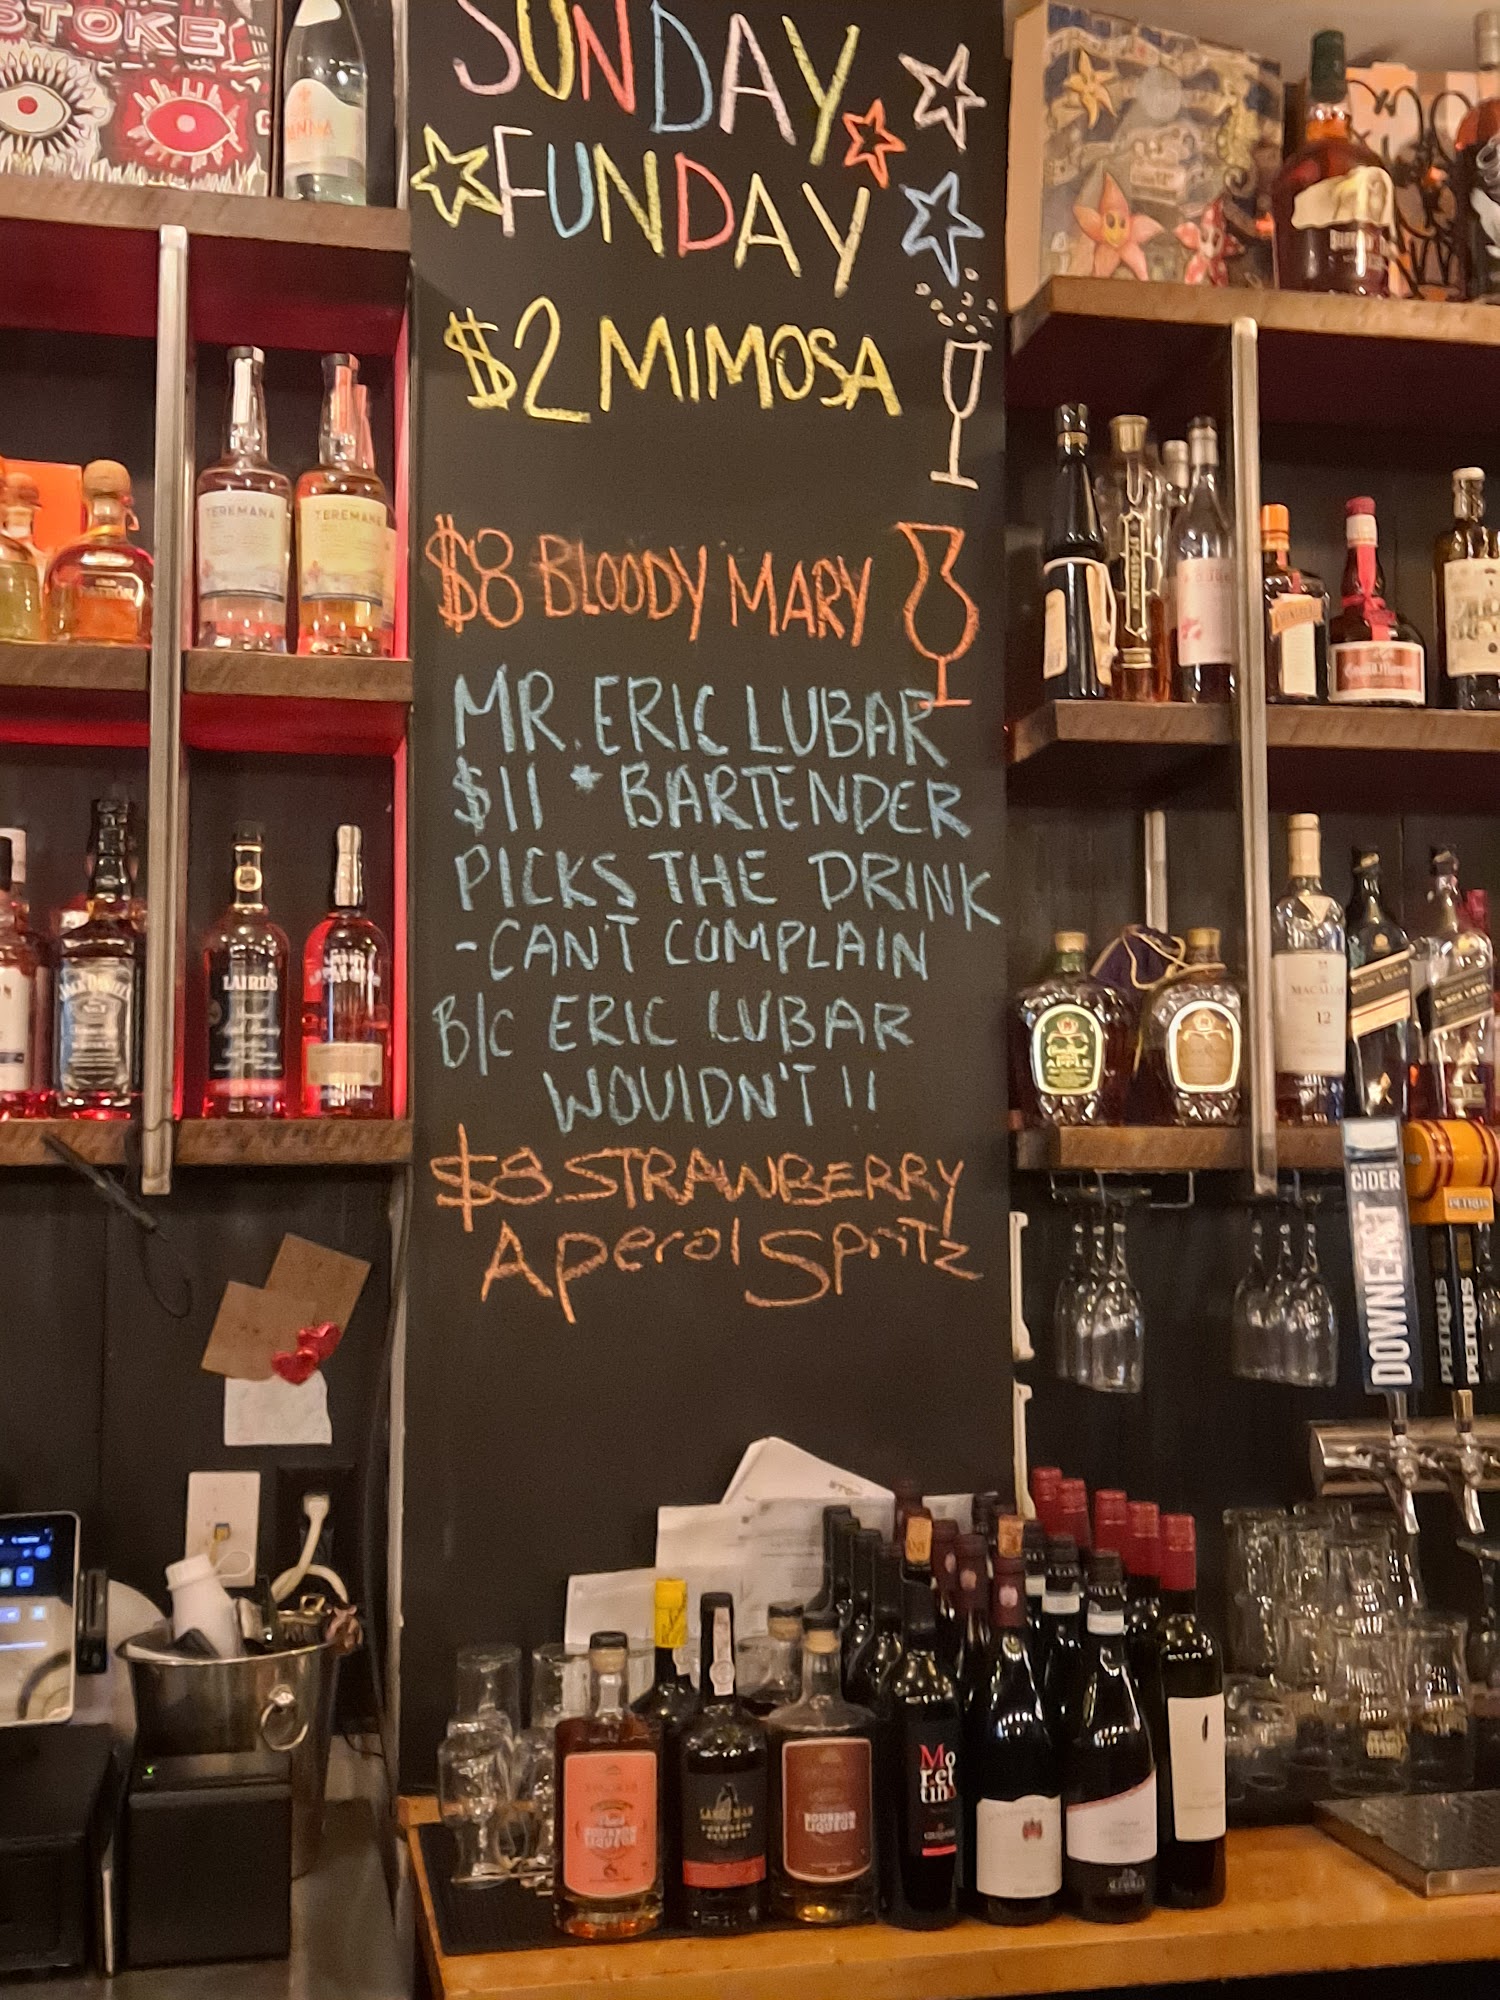 STOKE
SUNDAY
FUNDAY
$2 MIMOSA
$8 BLOODY MARY
MR. ERIC LUBAR
$11 * BARTENDER
PICKS THE DRINK
-CAN'T COMPLAIN
B/C ERIC LUBAR
WOULDN'T !!
$8 STRAWBERRY
Aperol Spritz
TEREMANA
TEREMANA
PATRÓN
JACK DANIEL'S
LAIRD'S
APPLE
MACALLAN
12
CIDER
DOWNEAST
PETRUS
PETRUS
PETRUS
BOURBON
LIQUEUR
SANDEMAN
FOUNDERS
RESERVE
BOURBON
LIQUEUR
Mo
ret
tino